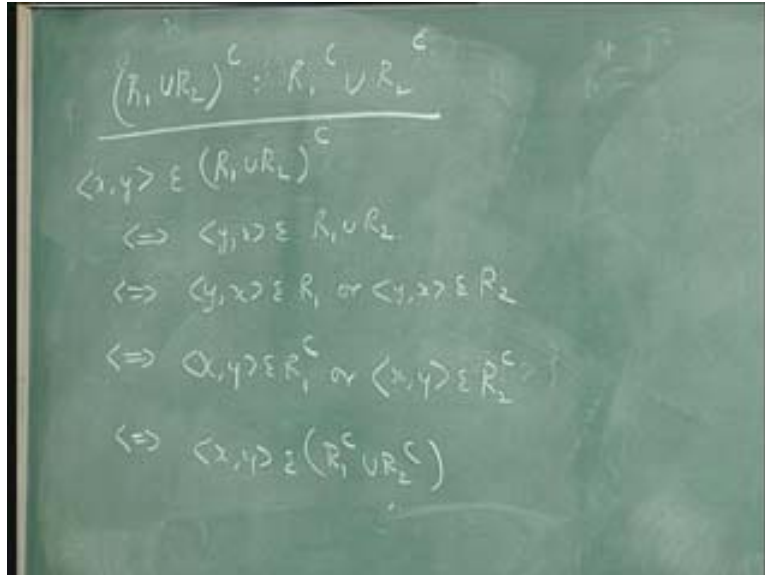 (R₁ ∪ R₂)ᶜ : R₁ᶜ ∪ R₂ᶜ
<x,y> ε (R₁ ∪ R₂)ᶜ
<=> <y,x> ε R₁ ∪ R₂
<=> <y,x> ε R₁ or <y,x> ε R₂
<=> <x,y> ε R₁ᶜ or <x,y> ε R₂ᶜ
<=> <x,y> ε (R₁ᶜ ∪ R₂ᶜ)